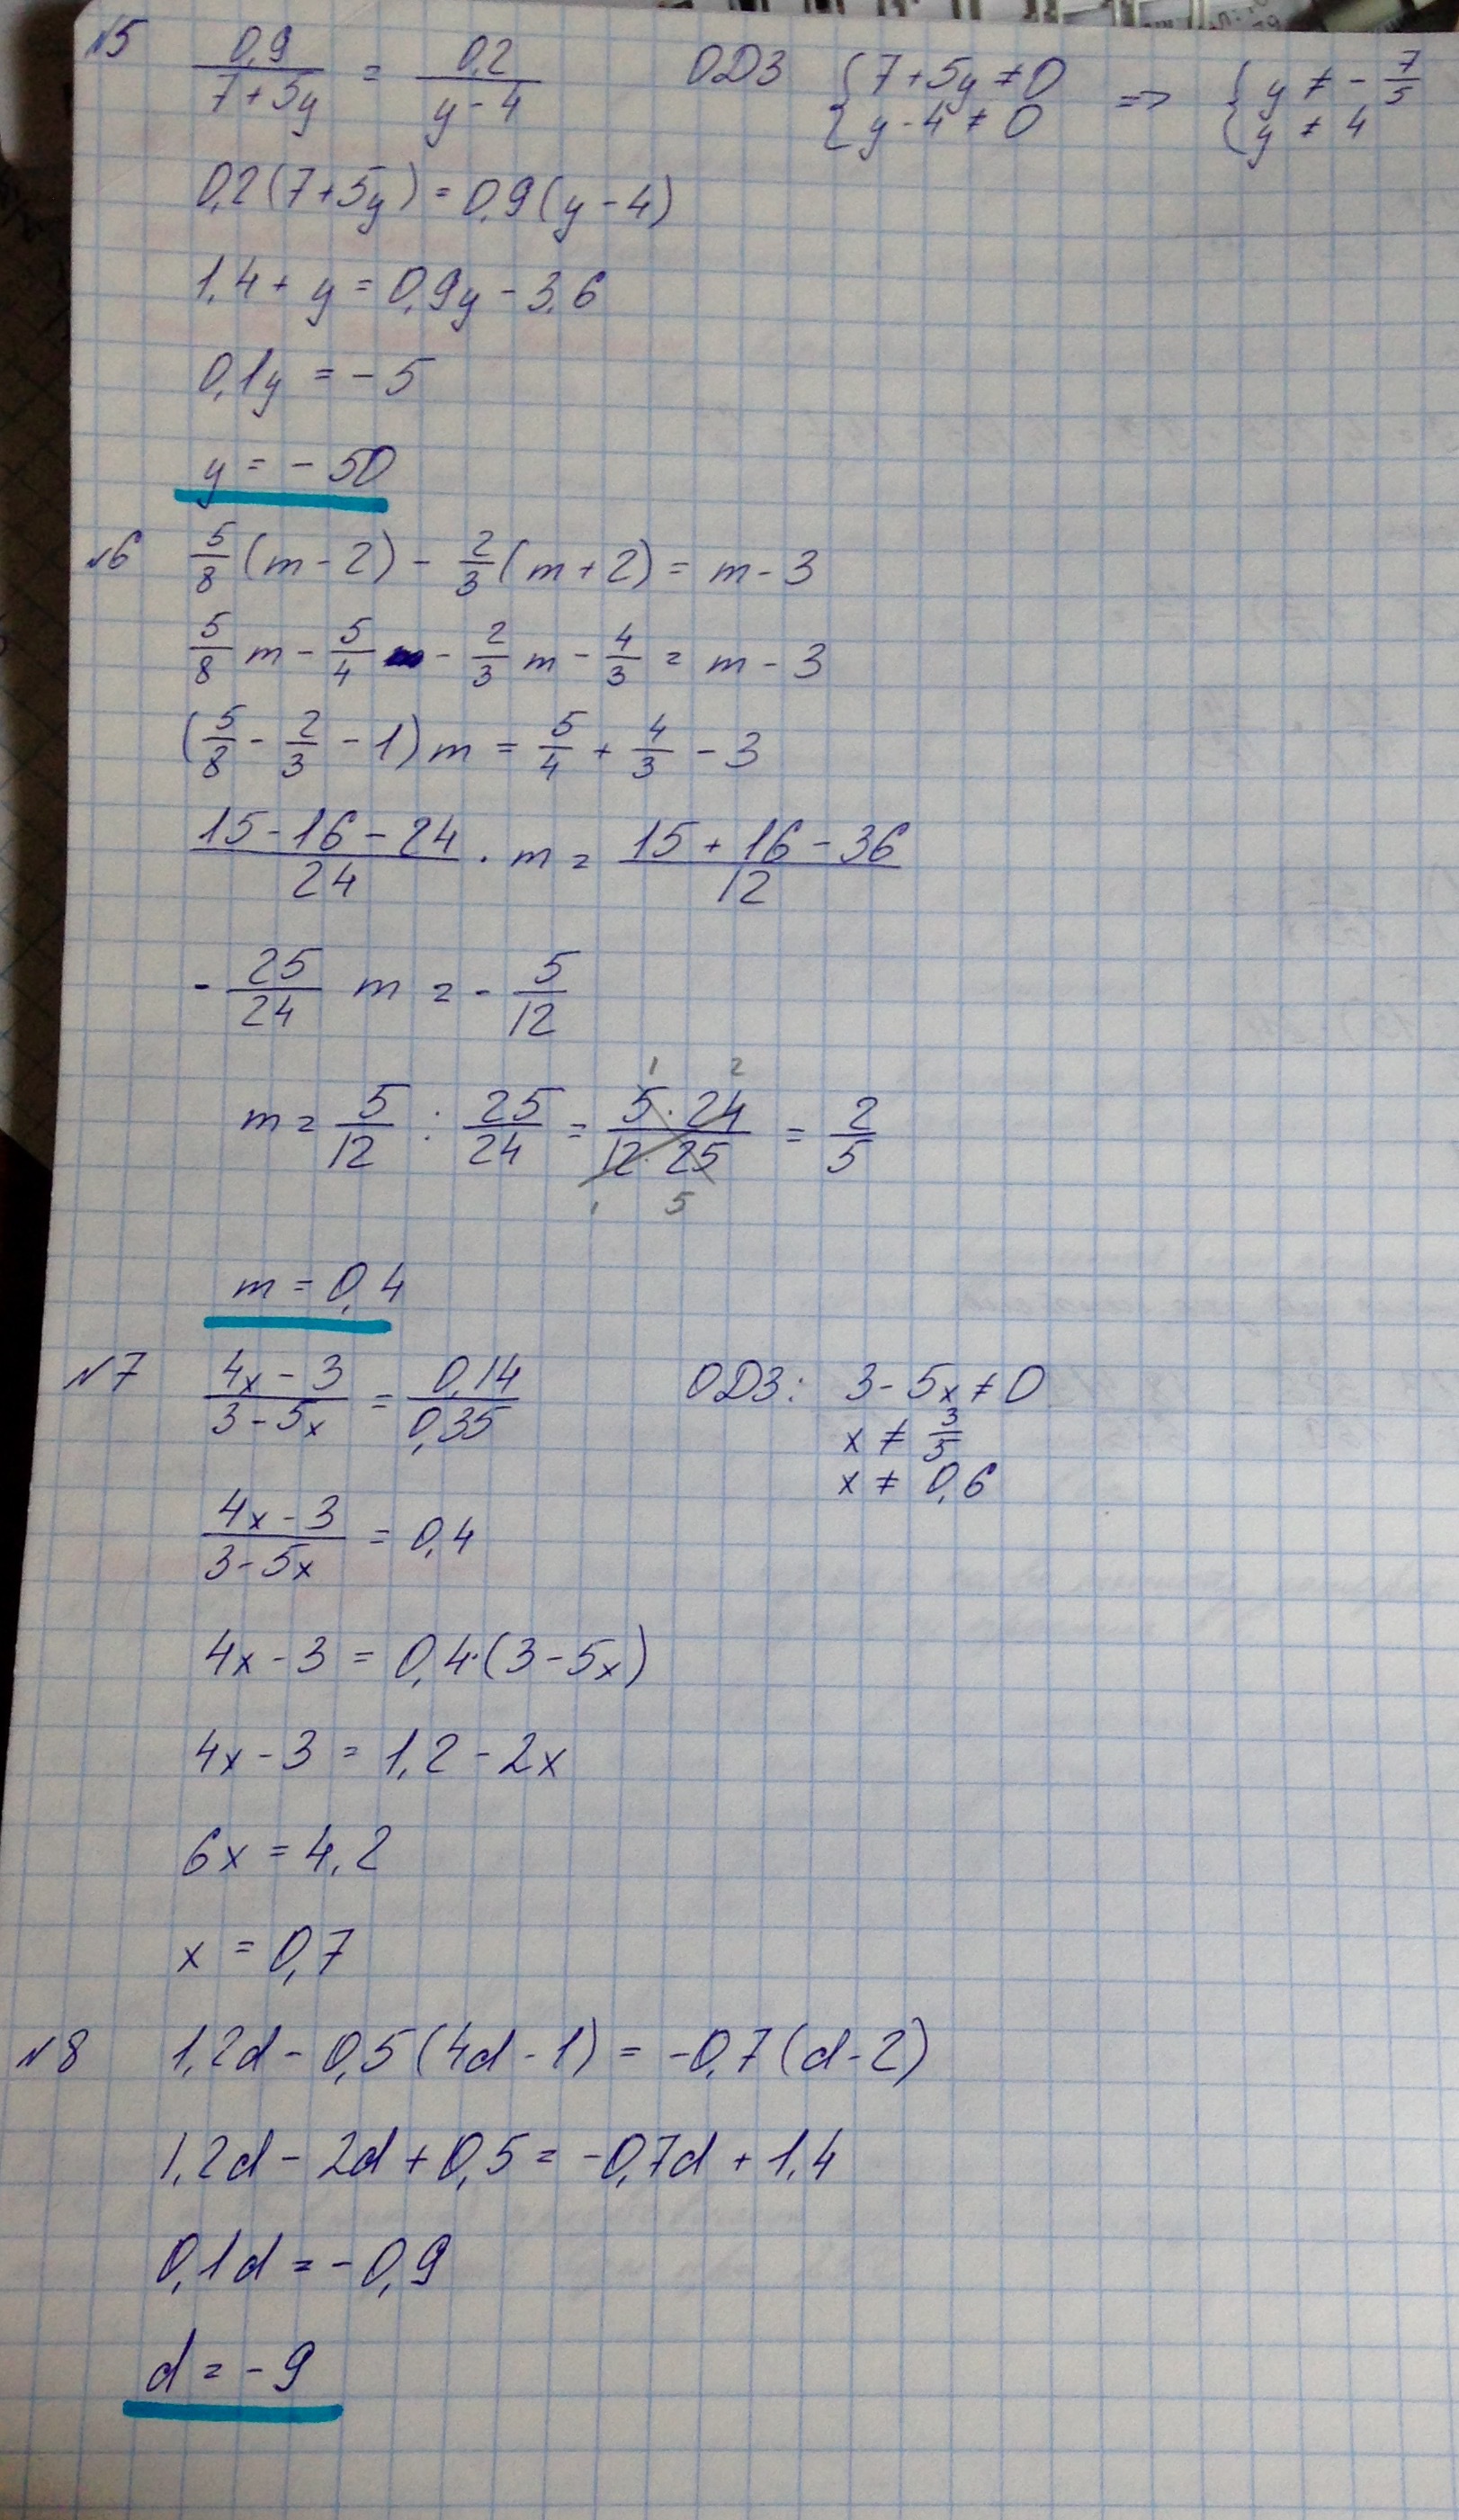 №5 0,9/(7+5y) = 0,2/(y-4) ОДЗ {7+5y≠0 {y-4≠0 => {y≠-7/5 {y≠4
0,2(7+5y)=0,9(y-4)
1,4+y=0,9y-3,6
0,1y=-5
y=-50
№6 5/8(m-2)-2/3(m+2)=m-3
5/8m-5/4-2/3m-4/3=m-3
(5/8-2/3-1)m=5/4+4/3-3
(15-16-24)/24·m=(15+16-36)/12
-25/24 m=-5/12
m=5/12:25/24=(5·24)/(12·25)=2/5
1 2
1 5
m=0,4
№7 (4x-3)/(3-5x)=0,14/0,35 ОДЗ: 3-5x≠0
x≠3/5
x≠0,6
(4x-3)/(3-5x)=0,4
4x-3=0,4·(3-5x)
4x-3=1,2-2x
6x=4,2
x=0,7
№8 1,2d-0,5(4d-1)=-0,7(d-2)
1,2d-2d+0,5=-0,7d+1,4
0,1d=-0,9
d=-9